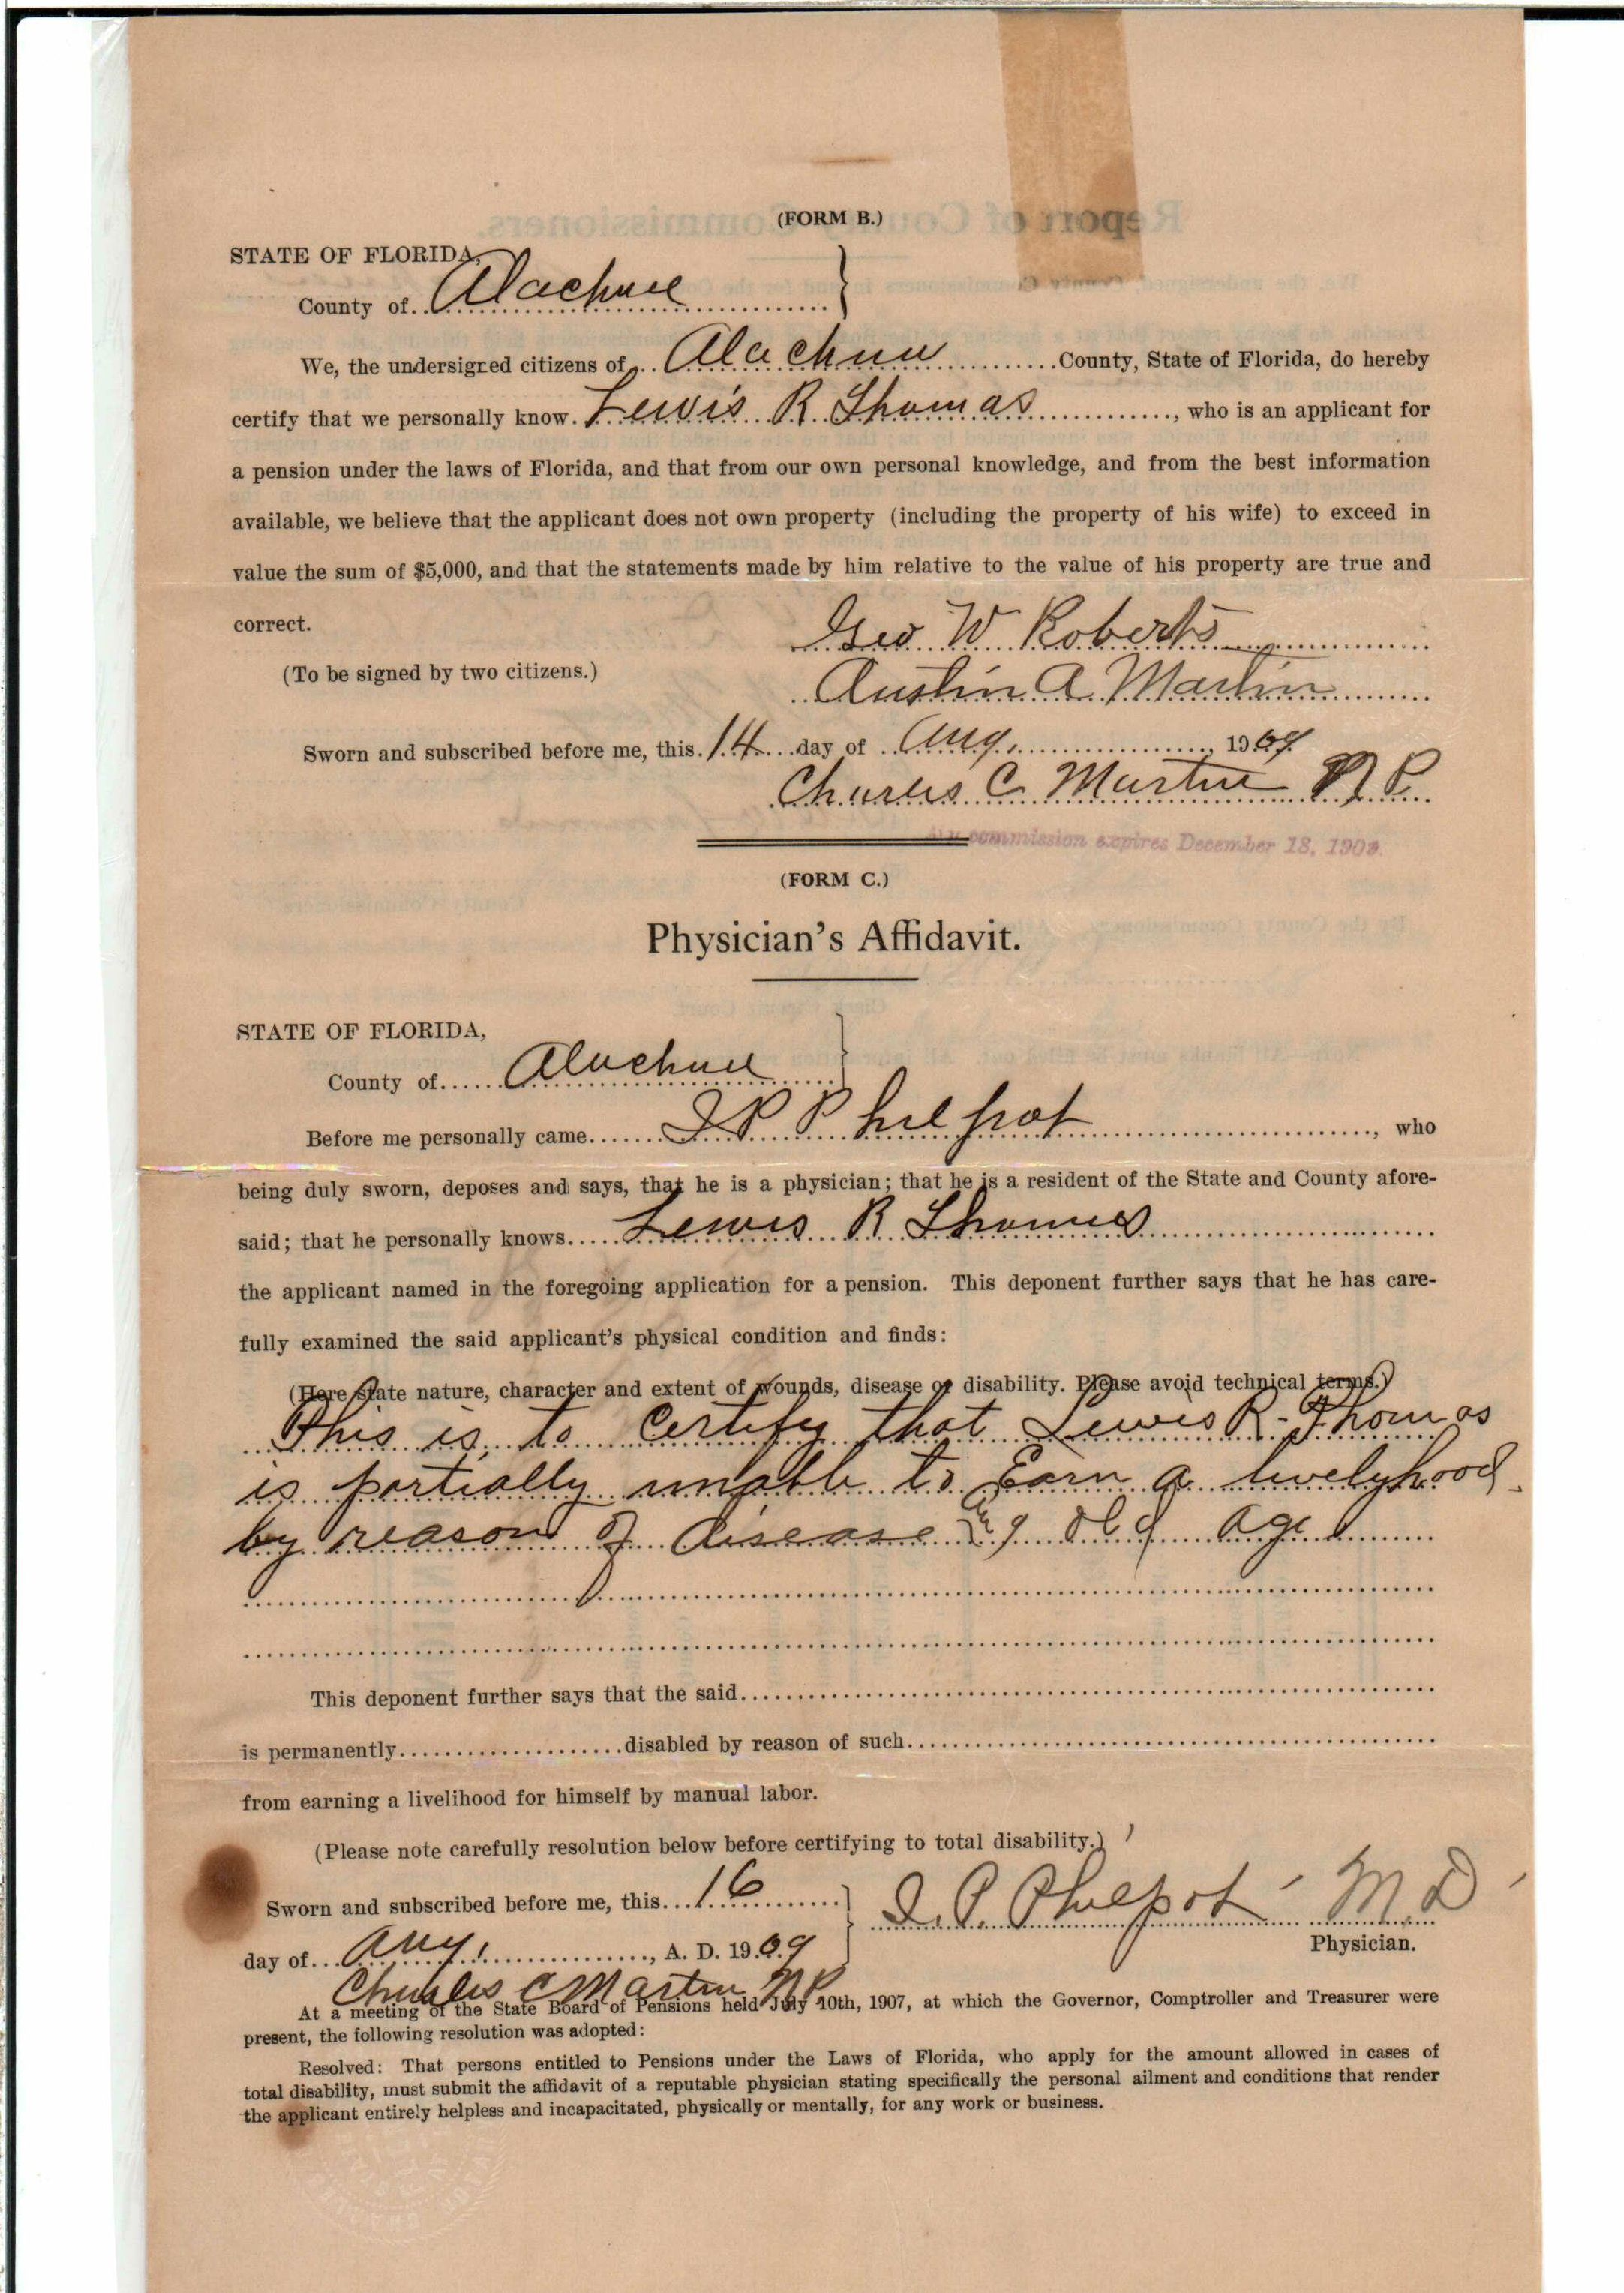 (FORM B.)
STATE OF FLORIDA,
County of Alachua
We, the undersigned citizens of Alachua County, State of Florida, do hereby
certify that we personally know Lewis R Thomas, who is an applicant for
a pension under the laws of Florida, and that from our own personal knowledge, and from the best information
available, we believe that the applicant does not own property (including the property of his wife) to exceed in
value the sum of $5,000, and that the statements made by him relative to the value of his property are true and
correct.
Geo W Roberts
(To be signed by two citizens.)
Austin A. Martin
Sworn and subscribed before me, this 14 day of Aug, 1909
Charles C Martin N P
commission expires December 18, 190
(FORM C.)
Physician's Affidavit.
STATE OF FLORIDA,
County of Alachua
Before me personally came J P Philpot, who
being duly sworn, deposes and says, that he is a physician; that he is a resident of the State and County afore-
said; that he personally knows Lewis R Thomas
the applicant named in the foregoing application for a pension. This deponent further says that he has care-
fully examined the said applicant's physical condition and finds:
(Here state nature, character and extent of wounds, disease or disability. Please avoid technical terms.)
This is to Certify that Lewis R. Thomas
is partially unable to Earn a livelyhood
by reason of disease & old age
This deponent further says that the said
is permanently disabled by reason of such
from earning a livelihood for himself by manual labor.
(Please note carefully resolution below before certifying to total disability.)
Sworn and subscribed before me, this 16
J. P. Philpot M.D
day of Aug, A. D. 1909
Physician.
Charles C Martin N P
At a meeting of the State Board of Pensions held July 10th, 1907, at which the Governor, Comptroller and Treasurer were
present, the following resolution was adopted:
Resolved: That persons entitled to Pensions under the Laws of Florida, who apply for the amount allowed in cases of
total disability, must submit the affidavit of a reputable physician stating specifically the personal ailment and conditions that render
the applicant entirely helpless and incapacitated, physically or mentally, for any work or business.